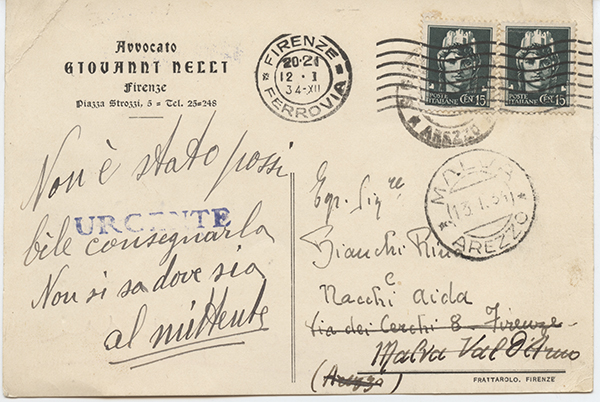 Avvocato
GIOVANNI NELLI
Firenze
Piazza Strozzi, 5 = Tel. 25=248
FIRENZE
20·21
12·I
34·XII
FERROVIA
POSTE ITALIANE CENT 15
POSTE ITALIANE CENT 15
AREZZO
MALVA
13.1.34
AREZZO
Non è stato possi
URGENTE
bile consegnarla
Non si sa dove sia
al mittente
Egr. Sig.re
Bianchi Rina
e
Nacchi Aida
Via dei Cerchi 8 - Firenze
Malva Val D'Arno
(Arezzo)
FRATTAROLO, FIRENZE